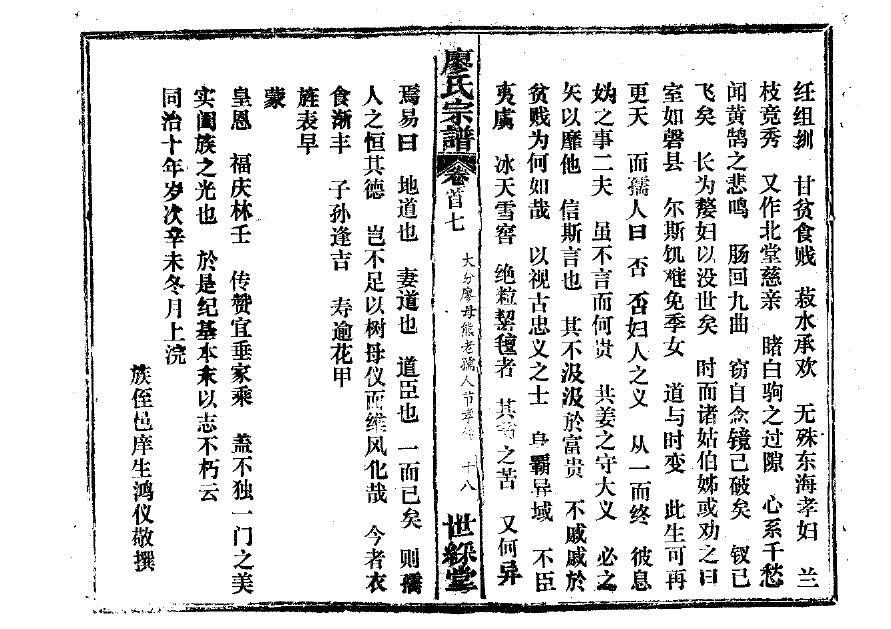 纴组紃 甘贫食贱 菽水承欢 无殊东海孝妇 兰
枝竞秀 又作北堂慈亲 睹白驹之过隙 心系千愁
闻黄鹄之悲鸣 肠回九曲 窃自念镜已破矣 钗已
飞矣 长为嫠妇以没世矣 时而诸姑伯姊或劝之曰
室如磬县 尔斯饥难免季女 道与时变 此生可再
更天 而孺人曰 否 否妇人之义 从一而终 彼息
妫之事二夫 虽不言而何贵 共姜之守大义 必之
矢以靡他 信斯言也 其不汲汲於富贵 不戚戚於
贫贱为何如哉 以视古忠义之士 身羁异域 不臣
夷虏 冰天雪窖 绝粒啮毡者 其之苦 又何异
廖氏宗譜 卷首七 大分廖母熊老孺人节孝 十八 世綵堂
焉易曰 地道也 妻道也 道臣也 一而已矣 则孺
人之恒其德 岂不足以树母仪而维风化哉 今者衣
食渐丰 子孙逢吉 寿逾花甲
旌表早
蒙
皇恩 福庆林壬 传赞宜垂家乘 盖不独一门之美
实阖族之光也 於是纪基本末以志不朽云
同治十年岁次辛未冬月上浣
族侄邑庠生鸿仪敬撰